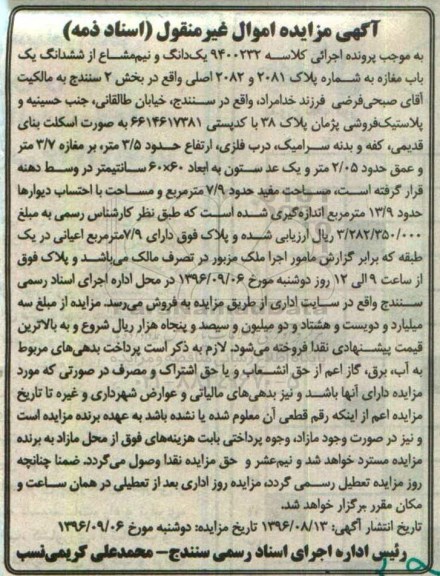 آگهی مزایده اموال غیرمنقول (اسناد ذمه)
به موجب پرونده اجرائی کلاسه ۹۴۰۰۲۳۲ یک‌دانگ و نیم‌مشاع از ششدانگ یک
باب مغازه به شماره پلاک ۲۰۸۱ و ۲۰۸۲ اصلی واقع در بخش ۲ سنندج به مالکیت
آقای صبحی‌فرضی فرزند خدامراد، واقع در سنندج، خیابان طالقانی، جنب حسینیه و
پلاستیک‌فروشی پژمان پلاک ۳۸ با کدپستی ۶۶۱۴۶۱۷۳۸۱ به صورت اسکلت بنای
قدیمی، کفه و بدنه سرامیک، درب فلزی، ارتفاع حدود ۳/۵ متر، بر مغازه ۳/۷ متر
و عمق حدود ۲/۰۵ متر و یک عدد ستون به ابعاد ۶۰×۶۰ سانتیمتر در وسط دهنه
قرار گرفته است، مساحت مفید حدود ۷/۹ مترمربع و مساحت با احتساب دیوارها
حدود ۱۳/۹ مترمربع اندازه‌گیری شده است که طبق نظر کارشناس رسمی به مبلغ
۳/۲۸۲/۳۵۰/۰۰۰ ریال ارزیابی شده و پلاک فوق دارای ۷/۹مترمربع اعیانی در یک
طبقه که برابر گزارش مامور اجرا ملک مزبور در تصرف مالک می‌باشد و پلاک فوق
از ساعت ۹ الی ۱۲ روز دوشنبه مورخ ۱۳۹۶/۰۹/۰۶ در محل اداره اجرای اسناد رسمی
سنندج واقع در سایت اداری از طریق مزایده به فروش می‌رسد. مزایده از مبلغ سه
میلیارد و دویست و هشتاد و دو میلیون و سیصد و پنجاه هزار ریال شروع و به بالاترین
قیمت پیشنهادی نقدا فروخته می‌شود. لازم به ذکر است پرداخت بدهی‌های مربوط
به آب، برق، گاز اعم از حق انشعاب و یا حق اشتراک و مصرف در صورتی که مورد
مزایده دارای آنها باشد و نیز بدهی‌های مالیاتی و عوارض شهرداری و غیره تا تاریخ
مزایده اعم از اینکه رقم قطعی آن معلوم شده یا نشده باشد به عهده برنده مزایده است
و نیز در صورت وجود مازاد، وجوه پرداختی بابت هزینه‌های فوق از محل مازاد به برنده
مزایده مسترد خواهد شد و نیم‌عشر و حق مزایده نقدا وصول می‌گردد. ضمنا چنانچه
روز مزایده تعطیل رسمی گردد، مزایده روز اداری بعد از تعطیلی در همان ساعت و
مکان مقرر برگزار خواهد شد.
تاریخ انتشار آگهی: ۱۳۹۶/۰۸/۱۳ تاریخ مزایده: دوشنبه مورخ ۱۳۹۶/۰۹/۰۶
رئیس اداره اجرای اسناد رسمی سنندج- محمدعلی کریمی‌نسب